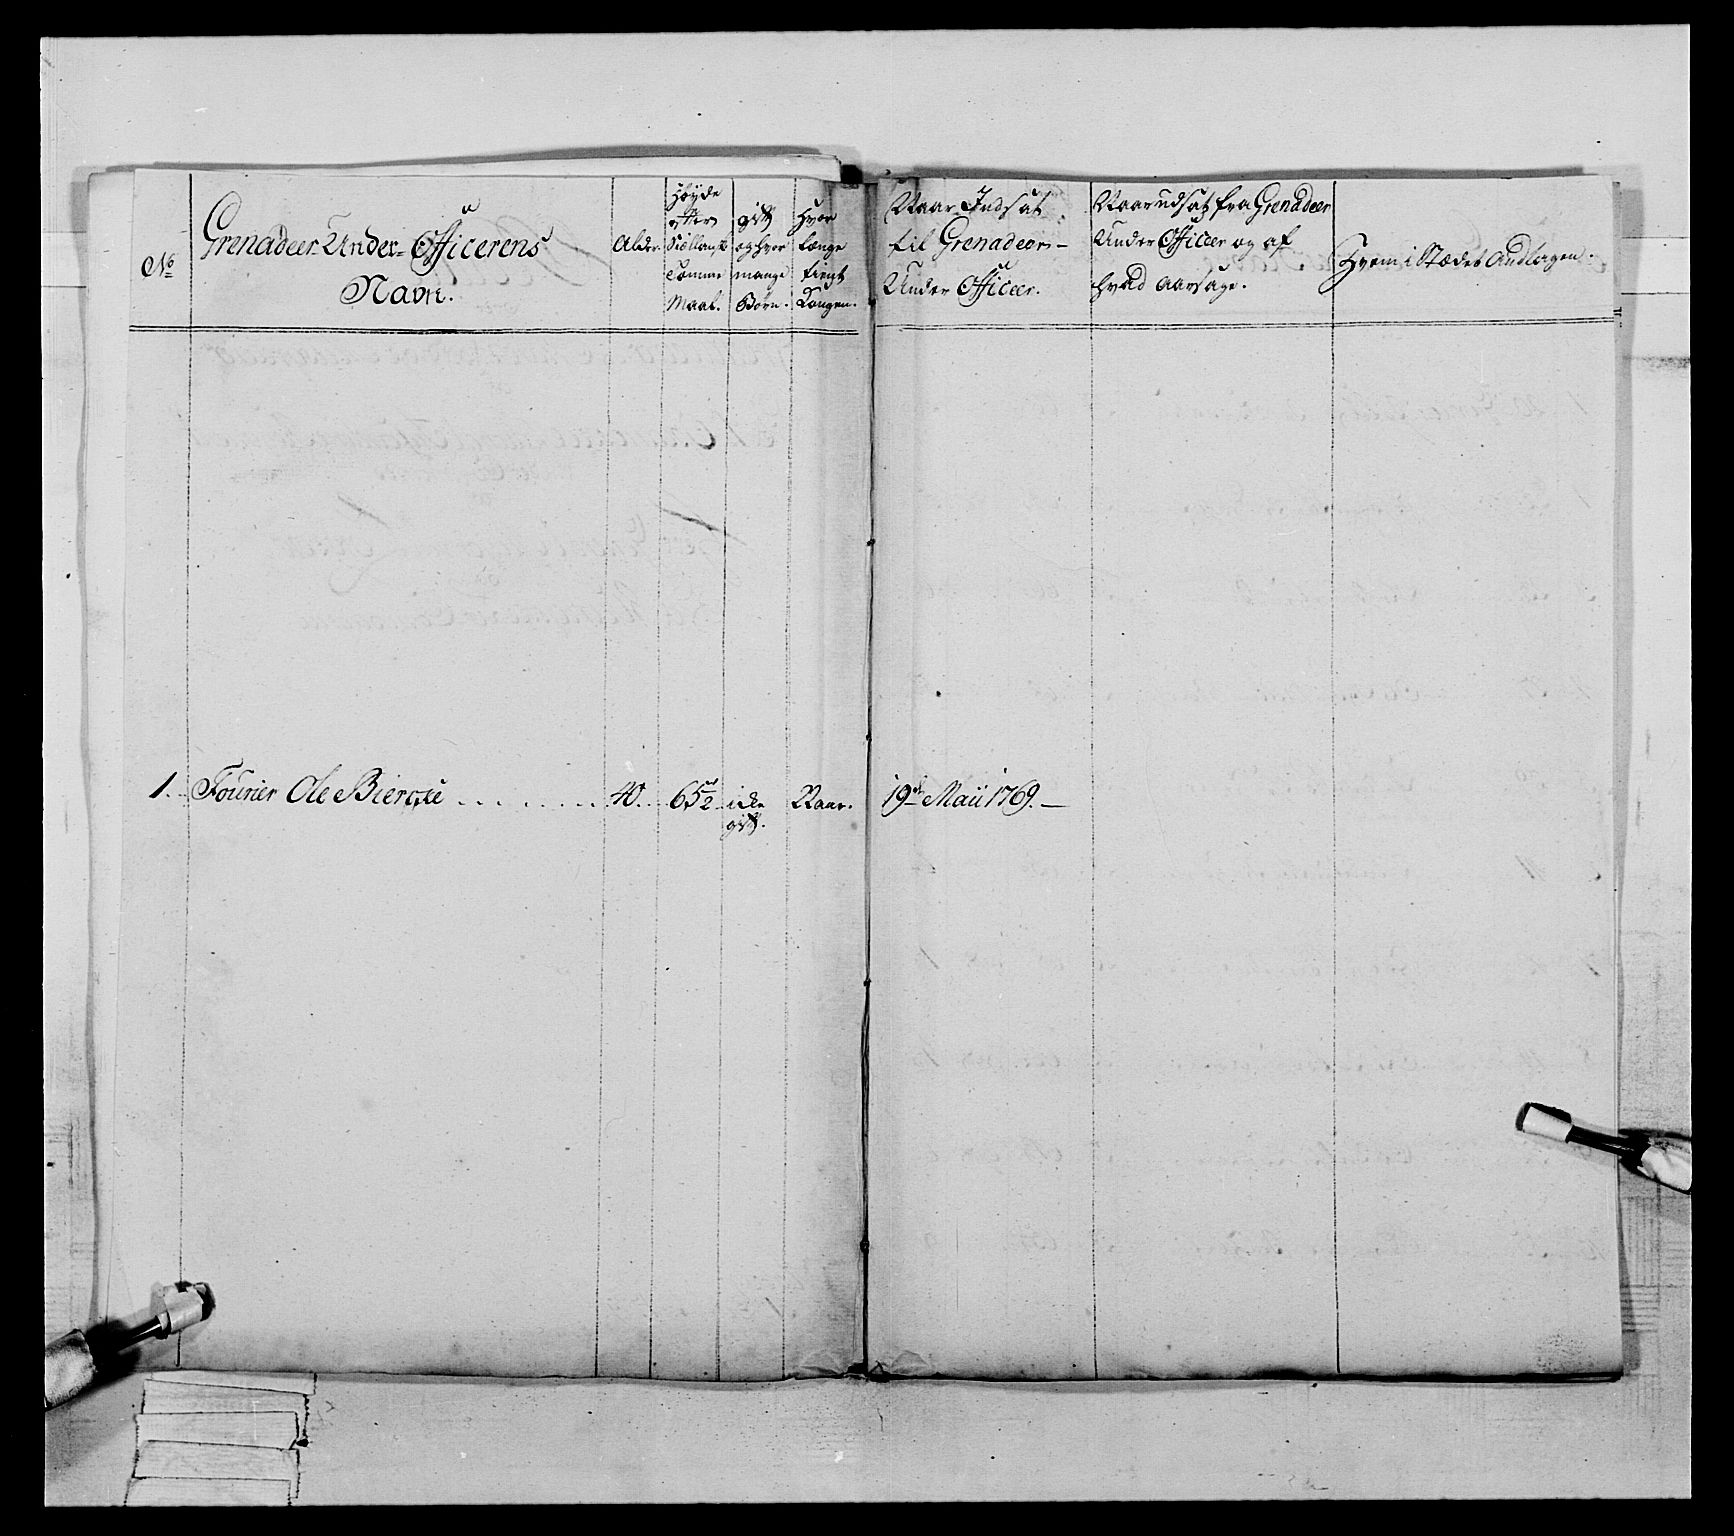 No
Grenadeer-Under-Officerens
Navn.
Alder
Høyde
efter
Siællansk
Tomme
Maal.
gift
og hvor
mange
Børn.
Hvor
længe
tient
Kongen.
Naar Indsat
til Grenadeer-
Under Officeer.
Naar udsat fra Grenadeer
Under Officeer og af
hvad Aarsage.
Hvem i Stædet Andtagen.
1. Fourier Ole Biercke 40. 65 1/2 icke Aar. 19de Maii 1769.
gift.